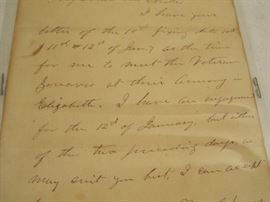 I have your
letter of the 10th fixing date at
11th & 12th of Jany as the time
for me to meet the Veteran
Zouaves at their Armory in
Elizabeth. I have an engagement
for the 12th of January, but either
of the two preceding days as
may suit you best, I can accept